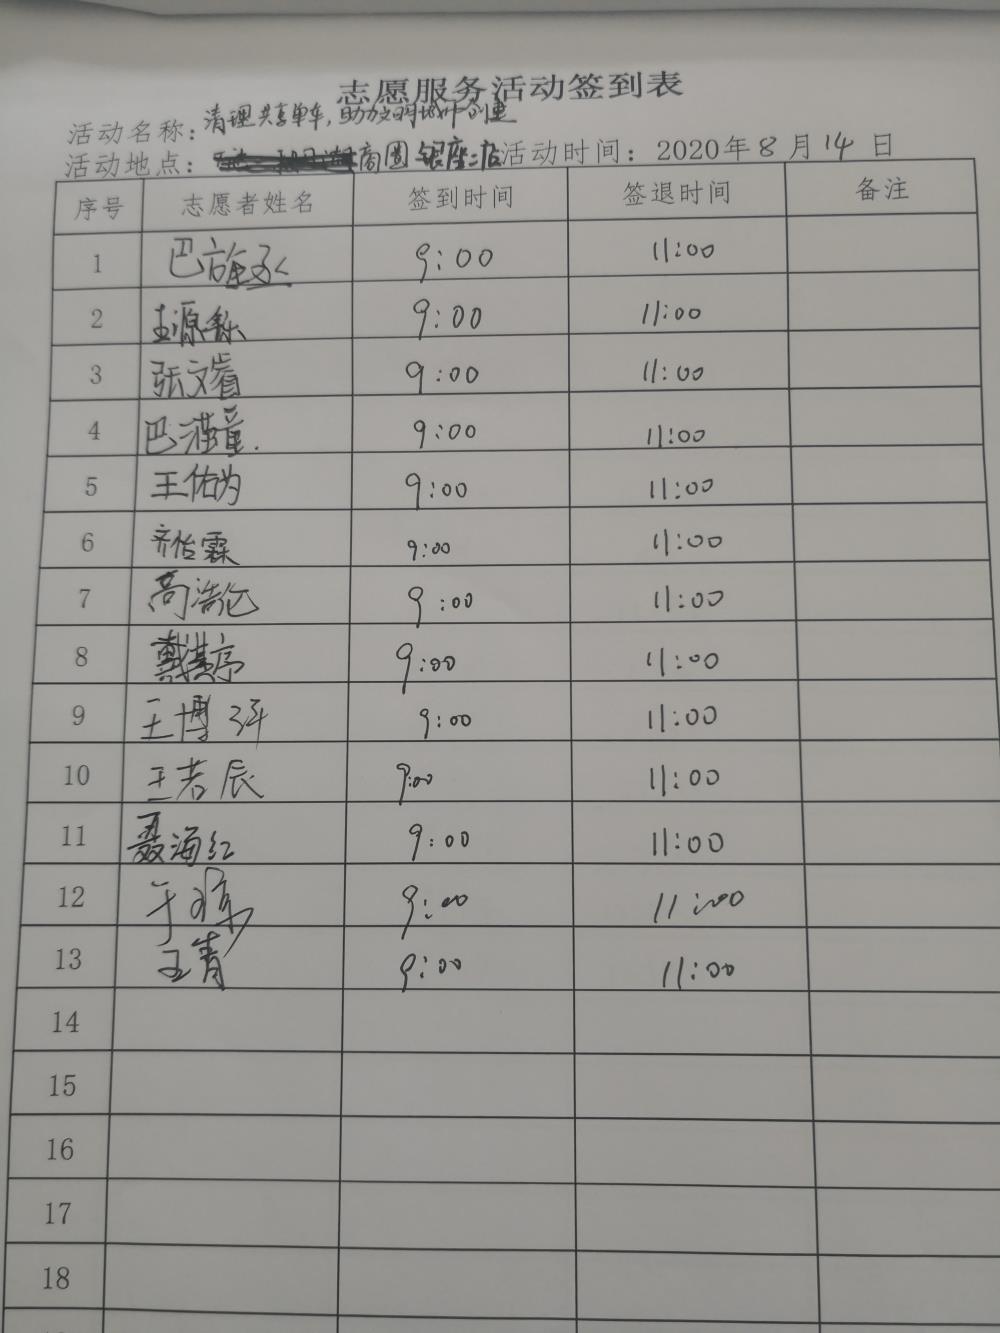 志愿服务活动签到表
活动名称：清理共享单车，助力文明城市创建
活动地点：商圈 银座二店 活动时间：2020年8月14日
序号 志愿者姓名 签到时间 签退时间 备注
1 巴 9:00 11:00
2 9:00 11:00
3 张文睿 9:00 11:00
4 巴 9:00 11:00
5 王佑为 9:00 11:00
6 齐怡霖 9:00 11:00
7 高浩伦 9:00 11:00
8 戴其序 9:00 11:00
9 王博 9:00 11:00
10 王若辰 9:00 11:00
11 聂海红 9:00 11:00
12 于 9:00 11:00
13 王青 9:00 11:00
14
15
16
17
18